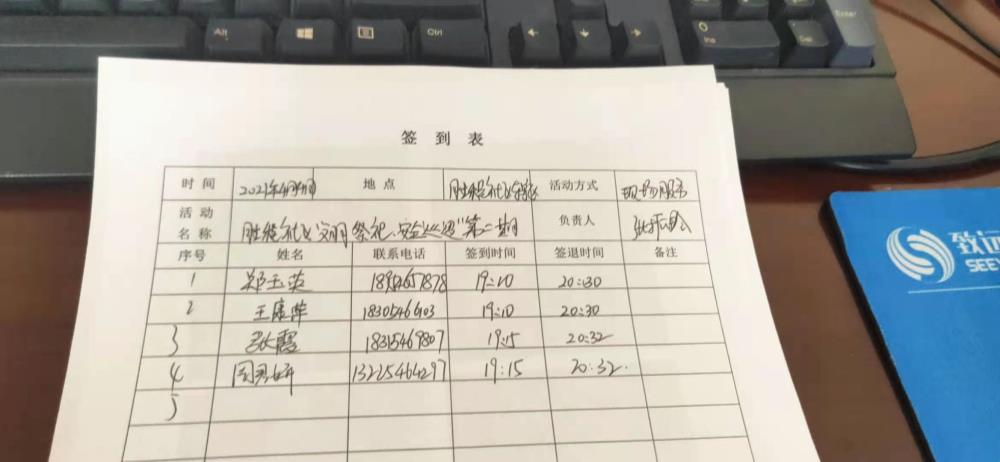 Alt
Ctrl
0
Ins
Del
Enter
签 到 表
时 间 2021年4月 地 点 胜楼社区 活动方式 现场服务
活 动
名 称 胜楼社区"文明祭祀、安全 "第二期 负责人 张
序号 姓名 联系电话 签到时间 签退时间 备注
1 郑玉英 19:10 20:30
2 王康萍 19:10 20:30
3 张霞 18315469807 19:15 20:32
4 周 13225464297 19:15 20:32
5
致远
SEEY